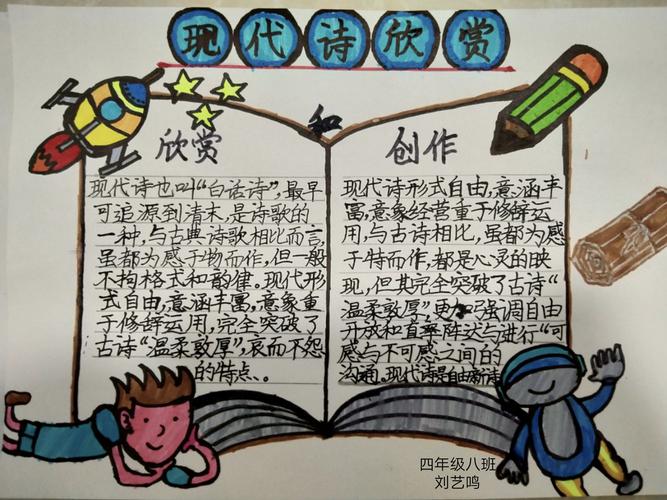 现代诗欣赏
和
欣赏
现代诗也叫“白话诗”,最早
可追源到清末,是诗歌的
一种,与古典诗歌相比而言,
虽都为感于物而作,但一般
不拘格式和韵律。现代形
式自由,意涵丰富,意象重
于修辞运用,完全突破了
古诗“温柔敦厚”,哀而不怨
的特点、。
创作
现代诗形式自由,意涵丰
富,意象经营重于修辞运
用,与古诗相比,虽都为感
于特而作,都是心灵的映
现,但其完全突破了古诗“
温柔敦厚”,更加强调自由
开放和直率阵达与进行“可
感与不可感之间的
沟通。现代诗是自由新诗
四年级八班
刘艺鸣